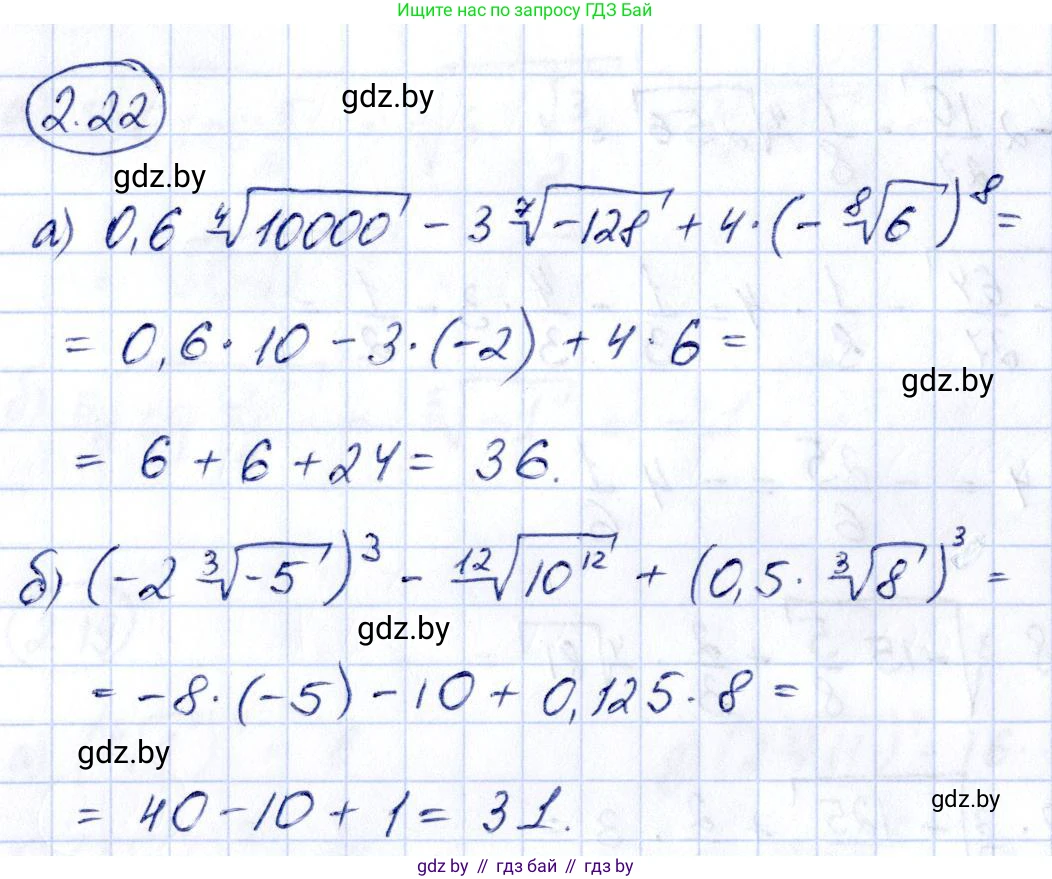 Ищите нас по запросу ГДЗ Бай
2.22
gdz.by
gdz.by
а) 0,6 ⁴√10000 - 3 ⁷√-128 + 4·(- ⁸√6)⁸ =
= 0,6·10 - 3·(-2) + 4·6 =
gdz.by
= 6 + 6 + 24 = 36.
б) (-2 ³√-5)³ - ¹²√10¹² + (0,5· ³√8)³ =
gdz.by
= -8·(-5) - 10 + 0,125·8 =
gdz.by
= 40 - 10 + 1 = 31.
gdz.by
gdz by // гдз бай // гдз by